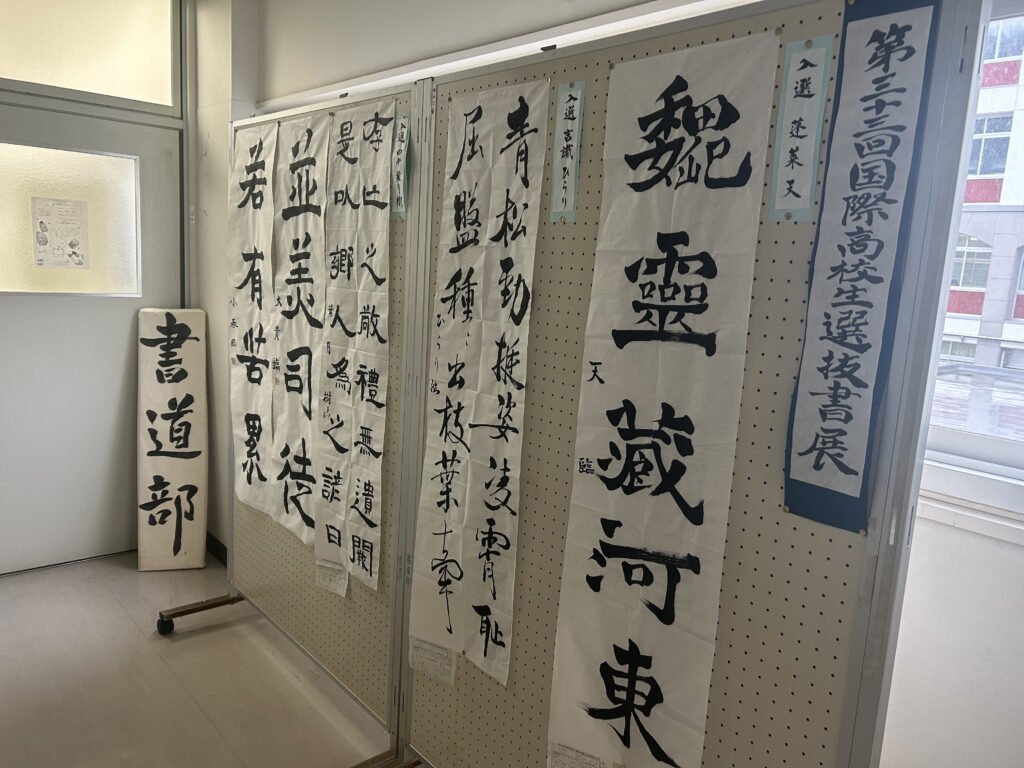 第三十三回国際高校生選抜書展
入選 蓬莱天
魏靈藏河東
天
臨
入選 吉識ひらり
青松勁挺姿凌霄恥
屈盤種々出枝葉
ひらり
入選
存亡之敬禮無遺闕
是以鄉人為之諺曰
並美司徒
若有苦累
書道部